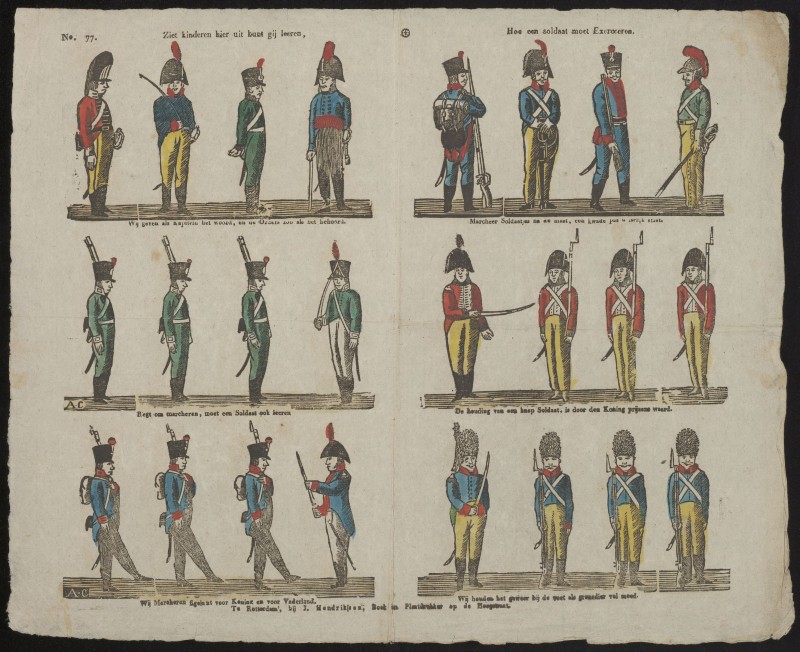 No. 77.
Ziet kinderen hier uit kunt gij leeren,
Hoe een soldaat moet Exerceren.
Wij geven als Kapitein het woord, en de Orders zoo als het behoord.
Marcheer Soldaatjes na de maat, een goede pas u
A.C.
Regt om marcheren, moet een Soldaat ook leeren
De houding van een knap Soldaat, is door den Koning prijzens waard.
A.C.
Wij Marcheren figelant voor Koning en voor Vaderland.
Wij houden het geweer bij de voet als grenadier vol moed.
Te Rotterdam, bij J. Hendriksen, Boek en Plaatdrukker op de Hoogstraat.